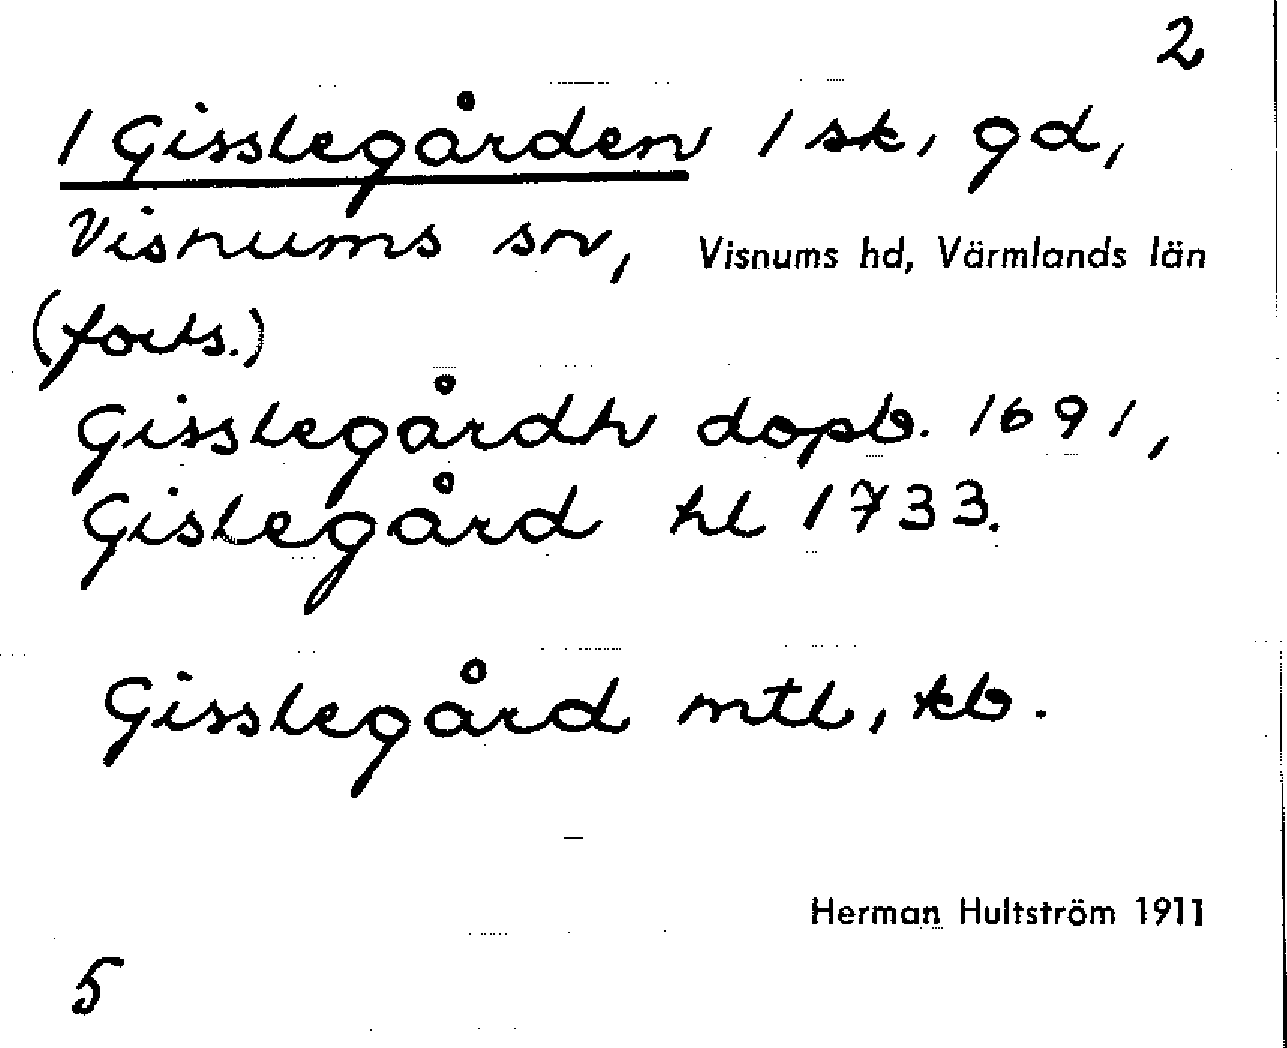 2
/Gisslegården /sk, gd,
Visnums sn, Visnums hd, Värmlands län
(forts.)
Gisslegårdh dopb. 1691,
Gislegård hl 1733.
Gisslegård mtl, kb.
Herman Hultström 1911
5